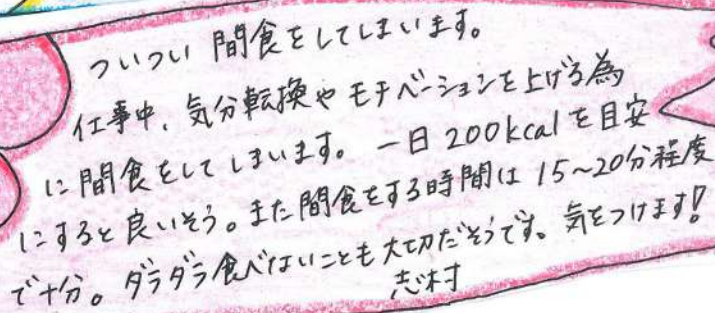 ついつい間食をしてしまいます。
仕事中、気分転換やモチベーションを上げる為
に間食をしてしまいます。一日200kcalを目安
にすると良いそう。また間食をする時間は15~20分程度
で十分。ダラダラ食べないことも大切だそうです。気をつけます!
志村